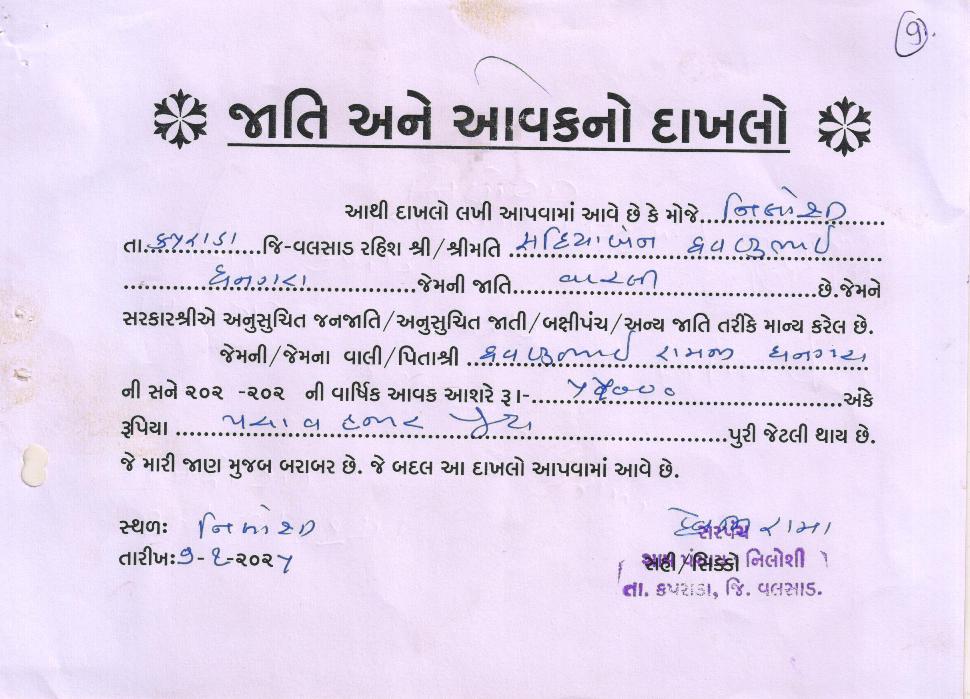 ૧
જાતિ અને આવકનો દાખલો
આથી દાખલો લખી આપવામાં આવે છે કે મોજે નિલોશી
તા. કપરાડા જિ-વલસાડ રહિશ શ્રી/શ્રીમતિ
ધનગરા જેમની જાતિ વારલી છે.જેમને
સરકારશ્રીએ અનુસુચિત જનજાતિ/અનુસુચિત જાતી/બક્ષીપંચ/અન્ય જાતિ તરીકે માન્ય કરેલ છે.
જેમની/જેમના વાલી/પિતાશ્રી રામજી ધનગરા
ની સને ૨૦૨ -૨૦૨ ની વાર્ષિક આવક આશરે રૂા- અંકે
રૂપિયા હજાર પુરા પુરી જેટલી થાય છે.
જે મારી જાણ મુજબ બરાબર છે. જે બદલ આ દાખલો આપવામાં આવે છે.
સ્થળઃ નિલોશી
તારીખઃ ૨૦૨૫
સરપંચ
સહી/સિક્કો નિલોશી
તા. કપરાડા, જિ. વલસાડ.